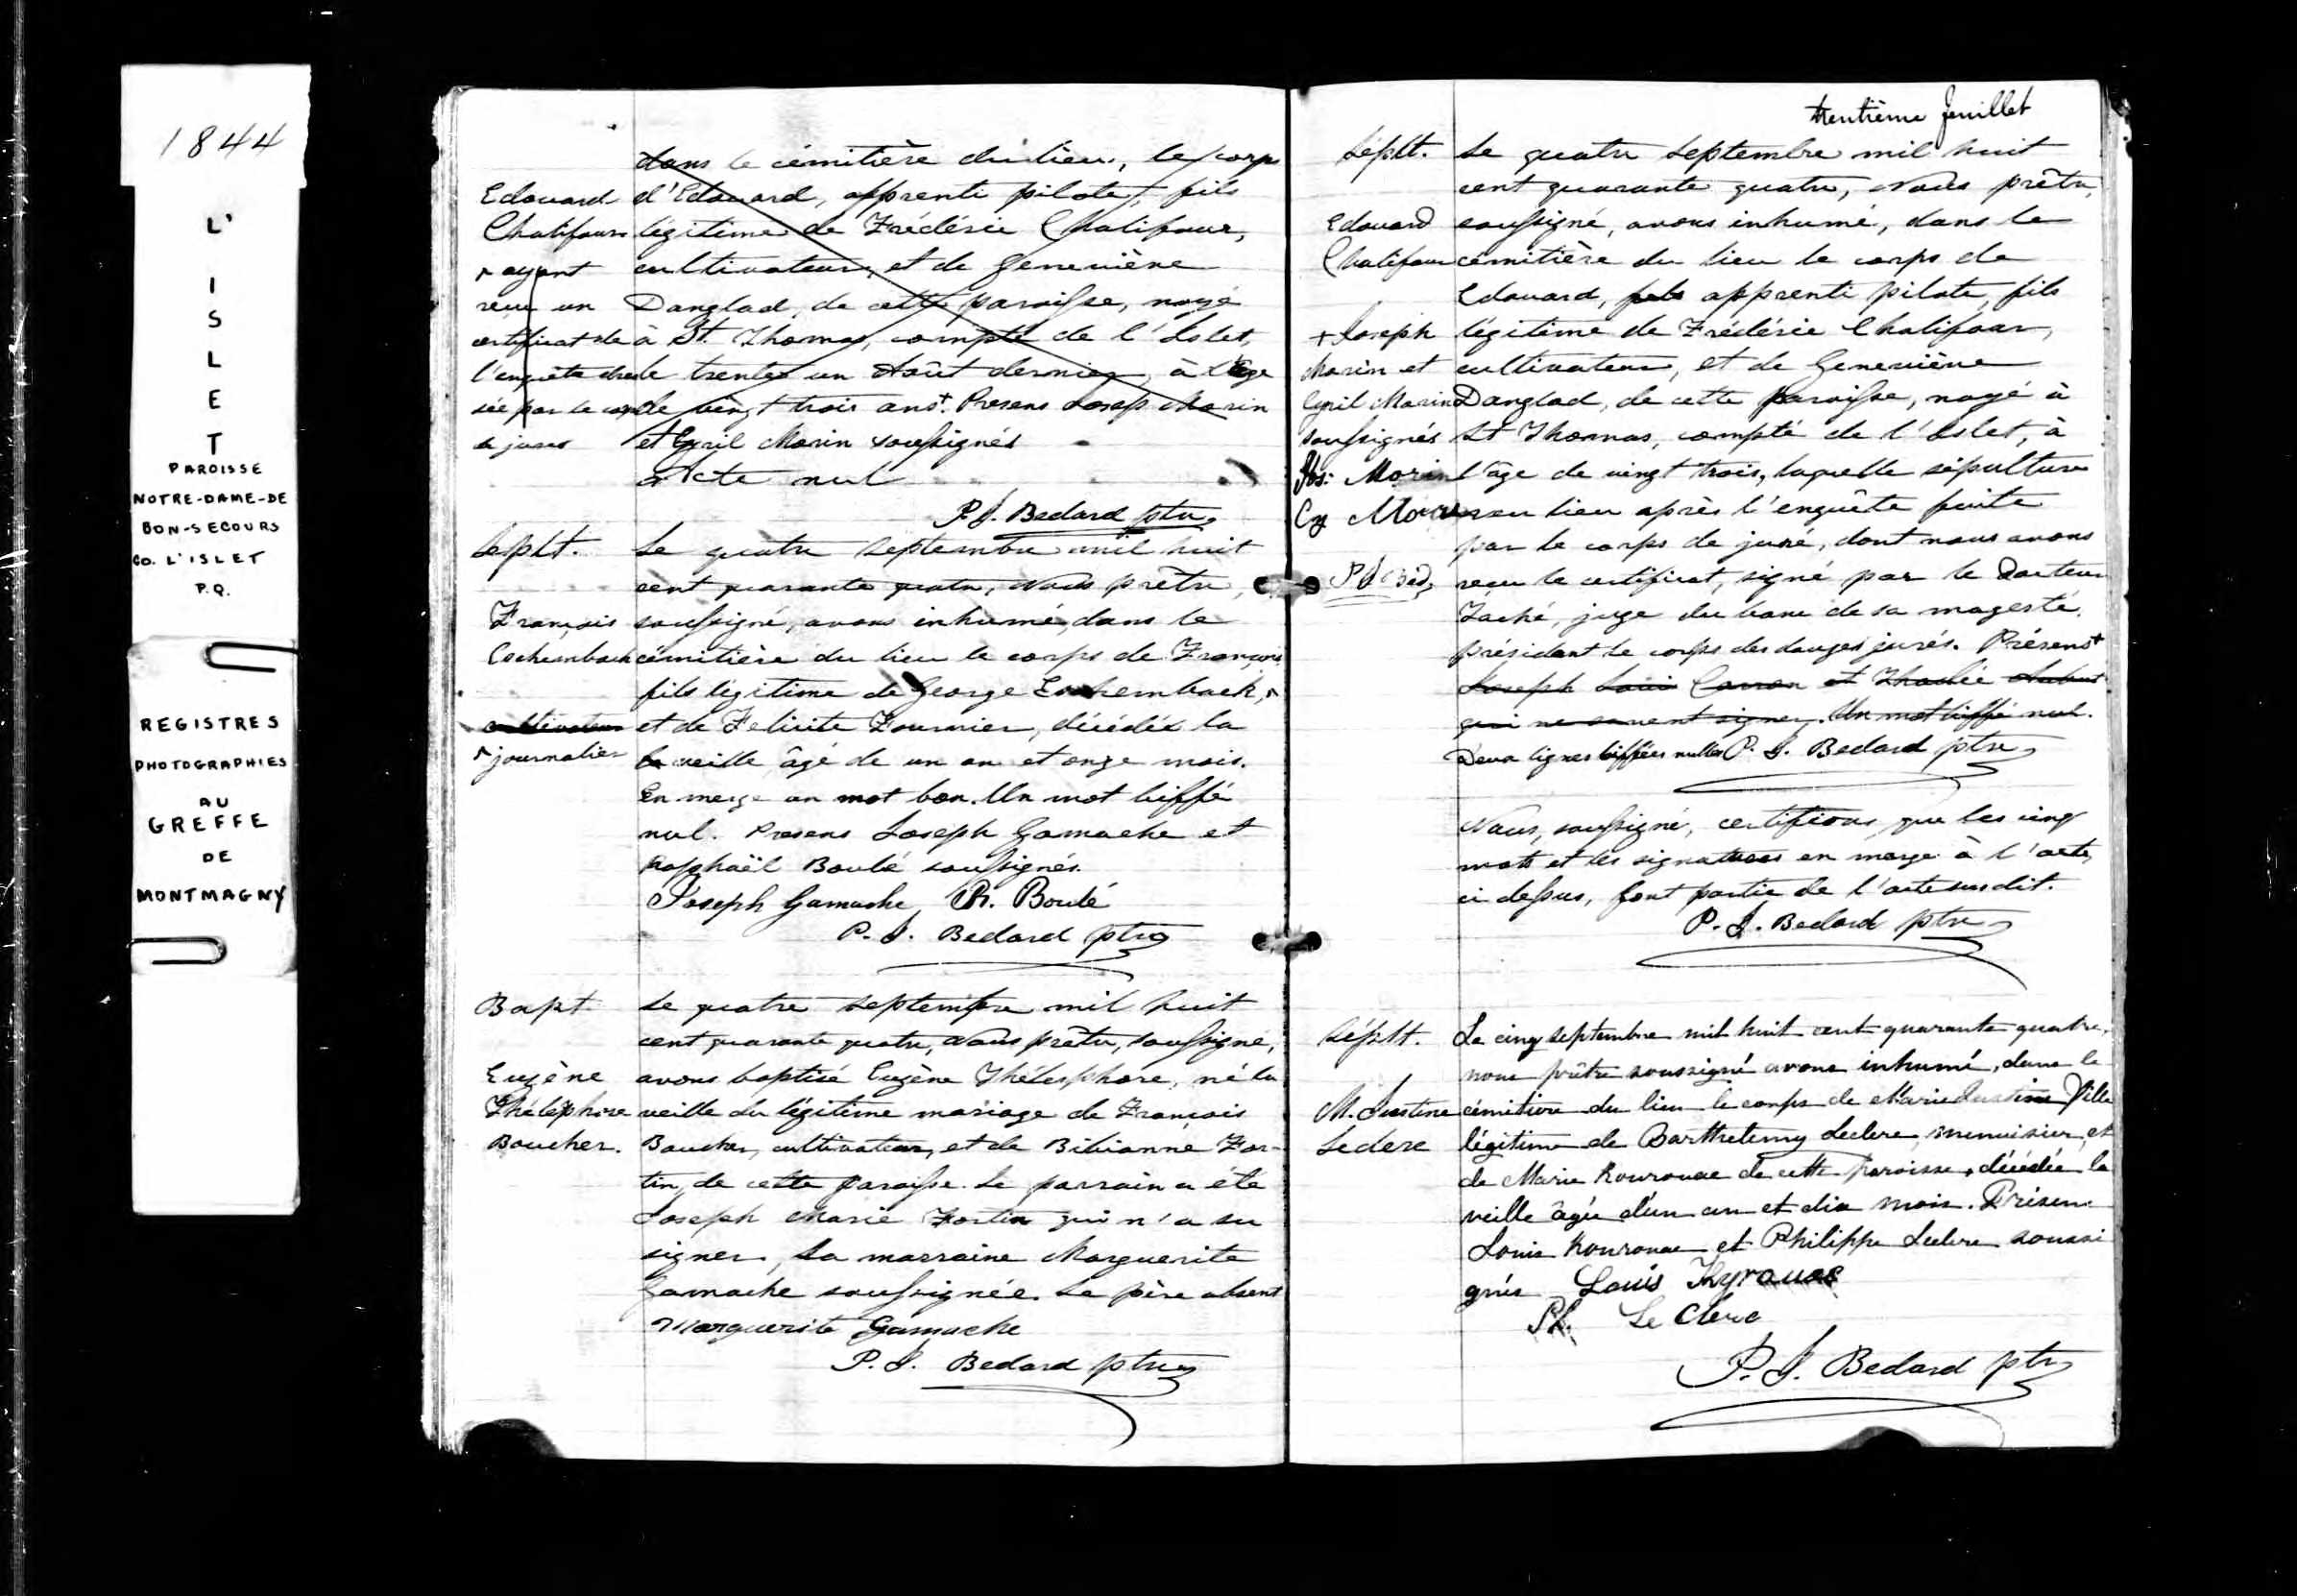 1844
L'
I
S
L
E
T
PAROISSE
NOTRE-DAME-DE
BON-SECOURS
CO. L'ISLET
P.Q.
REGISTRES
PHOTOGRAPHIES
AU
GREFFE
DE
MONTMAGNY
dans le cémitière du lieu, le corps
Edouard d'Edouard, apprenti pilote, fils
Chalifours légitime de Frédéric Chalifour,
ayant cultivateur, et de Geneviève
reçu un Danglad, de cette paroisse, noyé
certificat de à St. Thomas, compté de l'Islet,
l'enquête le trente un Août dernier, à l'âge
par le de vingt trois ans. Presens Joseph Morin
de jurés et Cyril Morin soussignés
Acte nul
P. J. Bedard ptre
Seplt. Le quatre septembre mil huit
cent quarante quatre, Nous prêtre,
François soussigné, avons inhumé, dans le
cémitière du lieu le corps de François
fils légitime de George
cultivateur et de Felicité Fournier, décédé la
journalier veille âgé de un an et onze mois.
En merge un mot bon. Un mot biffé
nul. Presens Joseph Gamache et
Raphaël Boulé soussignés.
Joseph Gamache R. Boulé
P. J. Bedard ptre
Bapt Le quatre septembre mil huit
cent quarante quatre, Nous prêtre, soussigné,
Eugène avons baptisé Eugène Thélesphore, né la
Thélésphore veille du légitime mariage de François
Boucher. Boucher, cultivateur, et de Bibianne For-
tin, de cette paroisse. Le parrain a été
Joseph Marie Fortin qui n'a su
signer, La marraine Marguerite
Gamache soussignée. Le père absent
Marguerite Gamache
P. J. Bedard ptre
trentième feuillet
Séplt. Le quatre septembre mil huit
cent quarante quatre, Nous prêtre,
Edouard soussigné, avons inhumé, dans le
Chalifour cémitière du lieu le corps de
Edouard, fils apprenti pilote, fils
+ Joseph légitime de Frédéric Chalifour,
Morin et cultivateur, et de Geneviève
Cyril Morin Danglad, de cette paroisse, noyé à
soussignés St Thomas, compté de l'Islet, à
Jos: Morin l'âge de vingt trois, laquelle sépulture
Cy Morin eu lieu après l'enquête faite
par le corps de juré, dont nous avons
P J Bed, reçu le certificat, signé par le Docteur
Taché, juge du banc de sa magesté.
présidant le corps des douze jurés. Présens +
Joseph Louis Caron et Thadée
qui ne savent signer. Un mot biffé nul.
Deux lignes biffées nulles P. J. Bedard ptre
Nous, soussigné, certifions que les cinq
mots et les signatures en marge à l'acte,
ci dessus, font partie de l'acte susdit.
P. J. Bedard ptre
Séplt. Le cinq septembre mil huit cent quarante quatre,
nous prêtre soussigné avons inhumé, dans le
M. Justine cémitière du lieu le corps de Marie Justine fille
Leclerc légitime de Barthelemy Leclerc, menuisier, et
de Marie Kourouac de cette paroisse, décédée la
veille âgée d'un an et dix mois. Présens
Louis Kourouac et Philippe Leclerc soussi
gnés Louis Kyrouac
Ph. Le Clerc
P. J. Bedard ptre